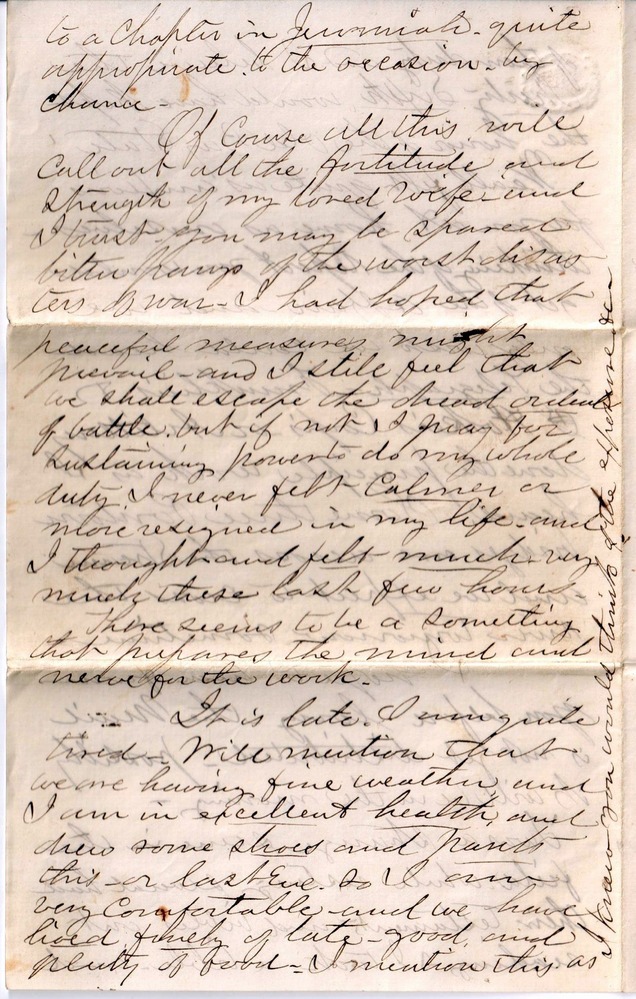 to a Chapter in Jeremiah - quite
appropriate to the occasion - by
chance -
Of Course all this will
Call out all the fortitude and
strength of my loved Wife - and
I trust you may be spared
bitter pangs of the worst disas
ters of war - I had hoped that
peaceful measures might
prevail - and I still feel that
we shall escape the dread ordeal
of battle. but if not, I pray for
sustaining power to do my whole
duty. I never felt Calmer or
more resigned in my life - and
I thought and felt much - very
much these last few hours -
There seems to be a something
that prepares the mind and
nerve for the work -
It is late. I am quite
tired - Will mention that
we are having fine weather and
I am in excellent health, and
drew some shoes and pants
this - or last Eve. so I am
very Comfortable - and we have
lived finely of late - good, and
plenty of food - I mention this as
I know you would think of the exposure &c -